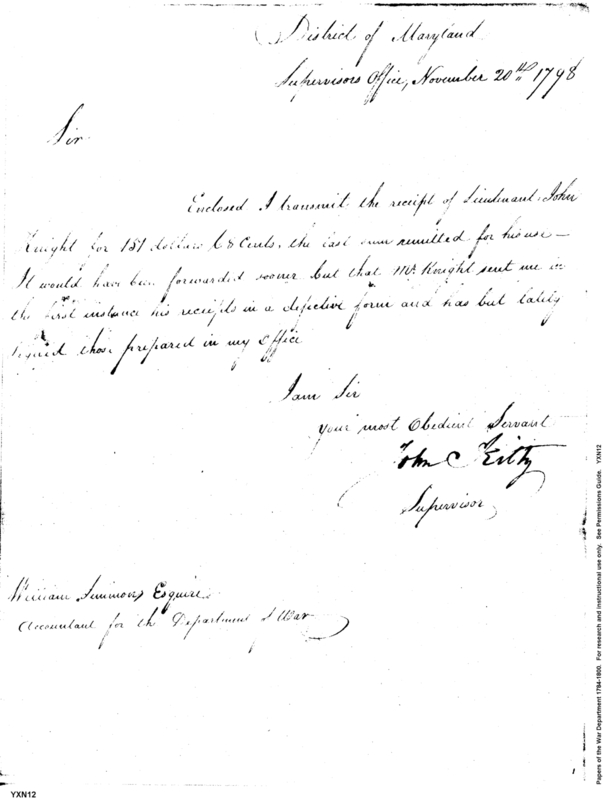 District of Maryland
Supervisors Office, November 20th 1798
Sir
Enclosed I transmit the receipt of Lieutenant John
Knight for 137 dollars 68 Cents, the last sum remitted for his use —
It would have been forwarded sooner but that Mr. Knight sent me in
the first instance his receipts in a defective form and has but lately
signed those prepared in my Office
I am Sir
your most Obedient Servant
John Kilty
Supervisor
William Simmons Esquire
Accountant for the Department of War
YXN12
Papers of the War Department 1784-1800. For research and instructional use only. See Permissions Guide. YXN12